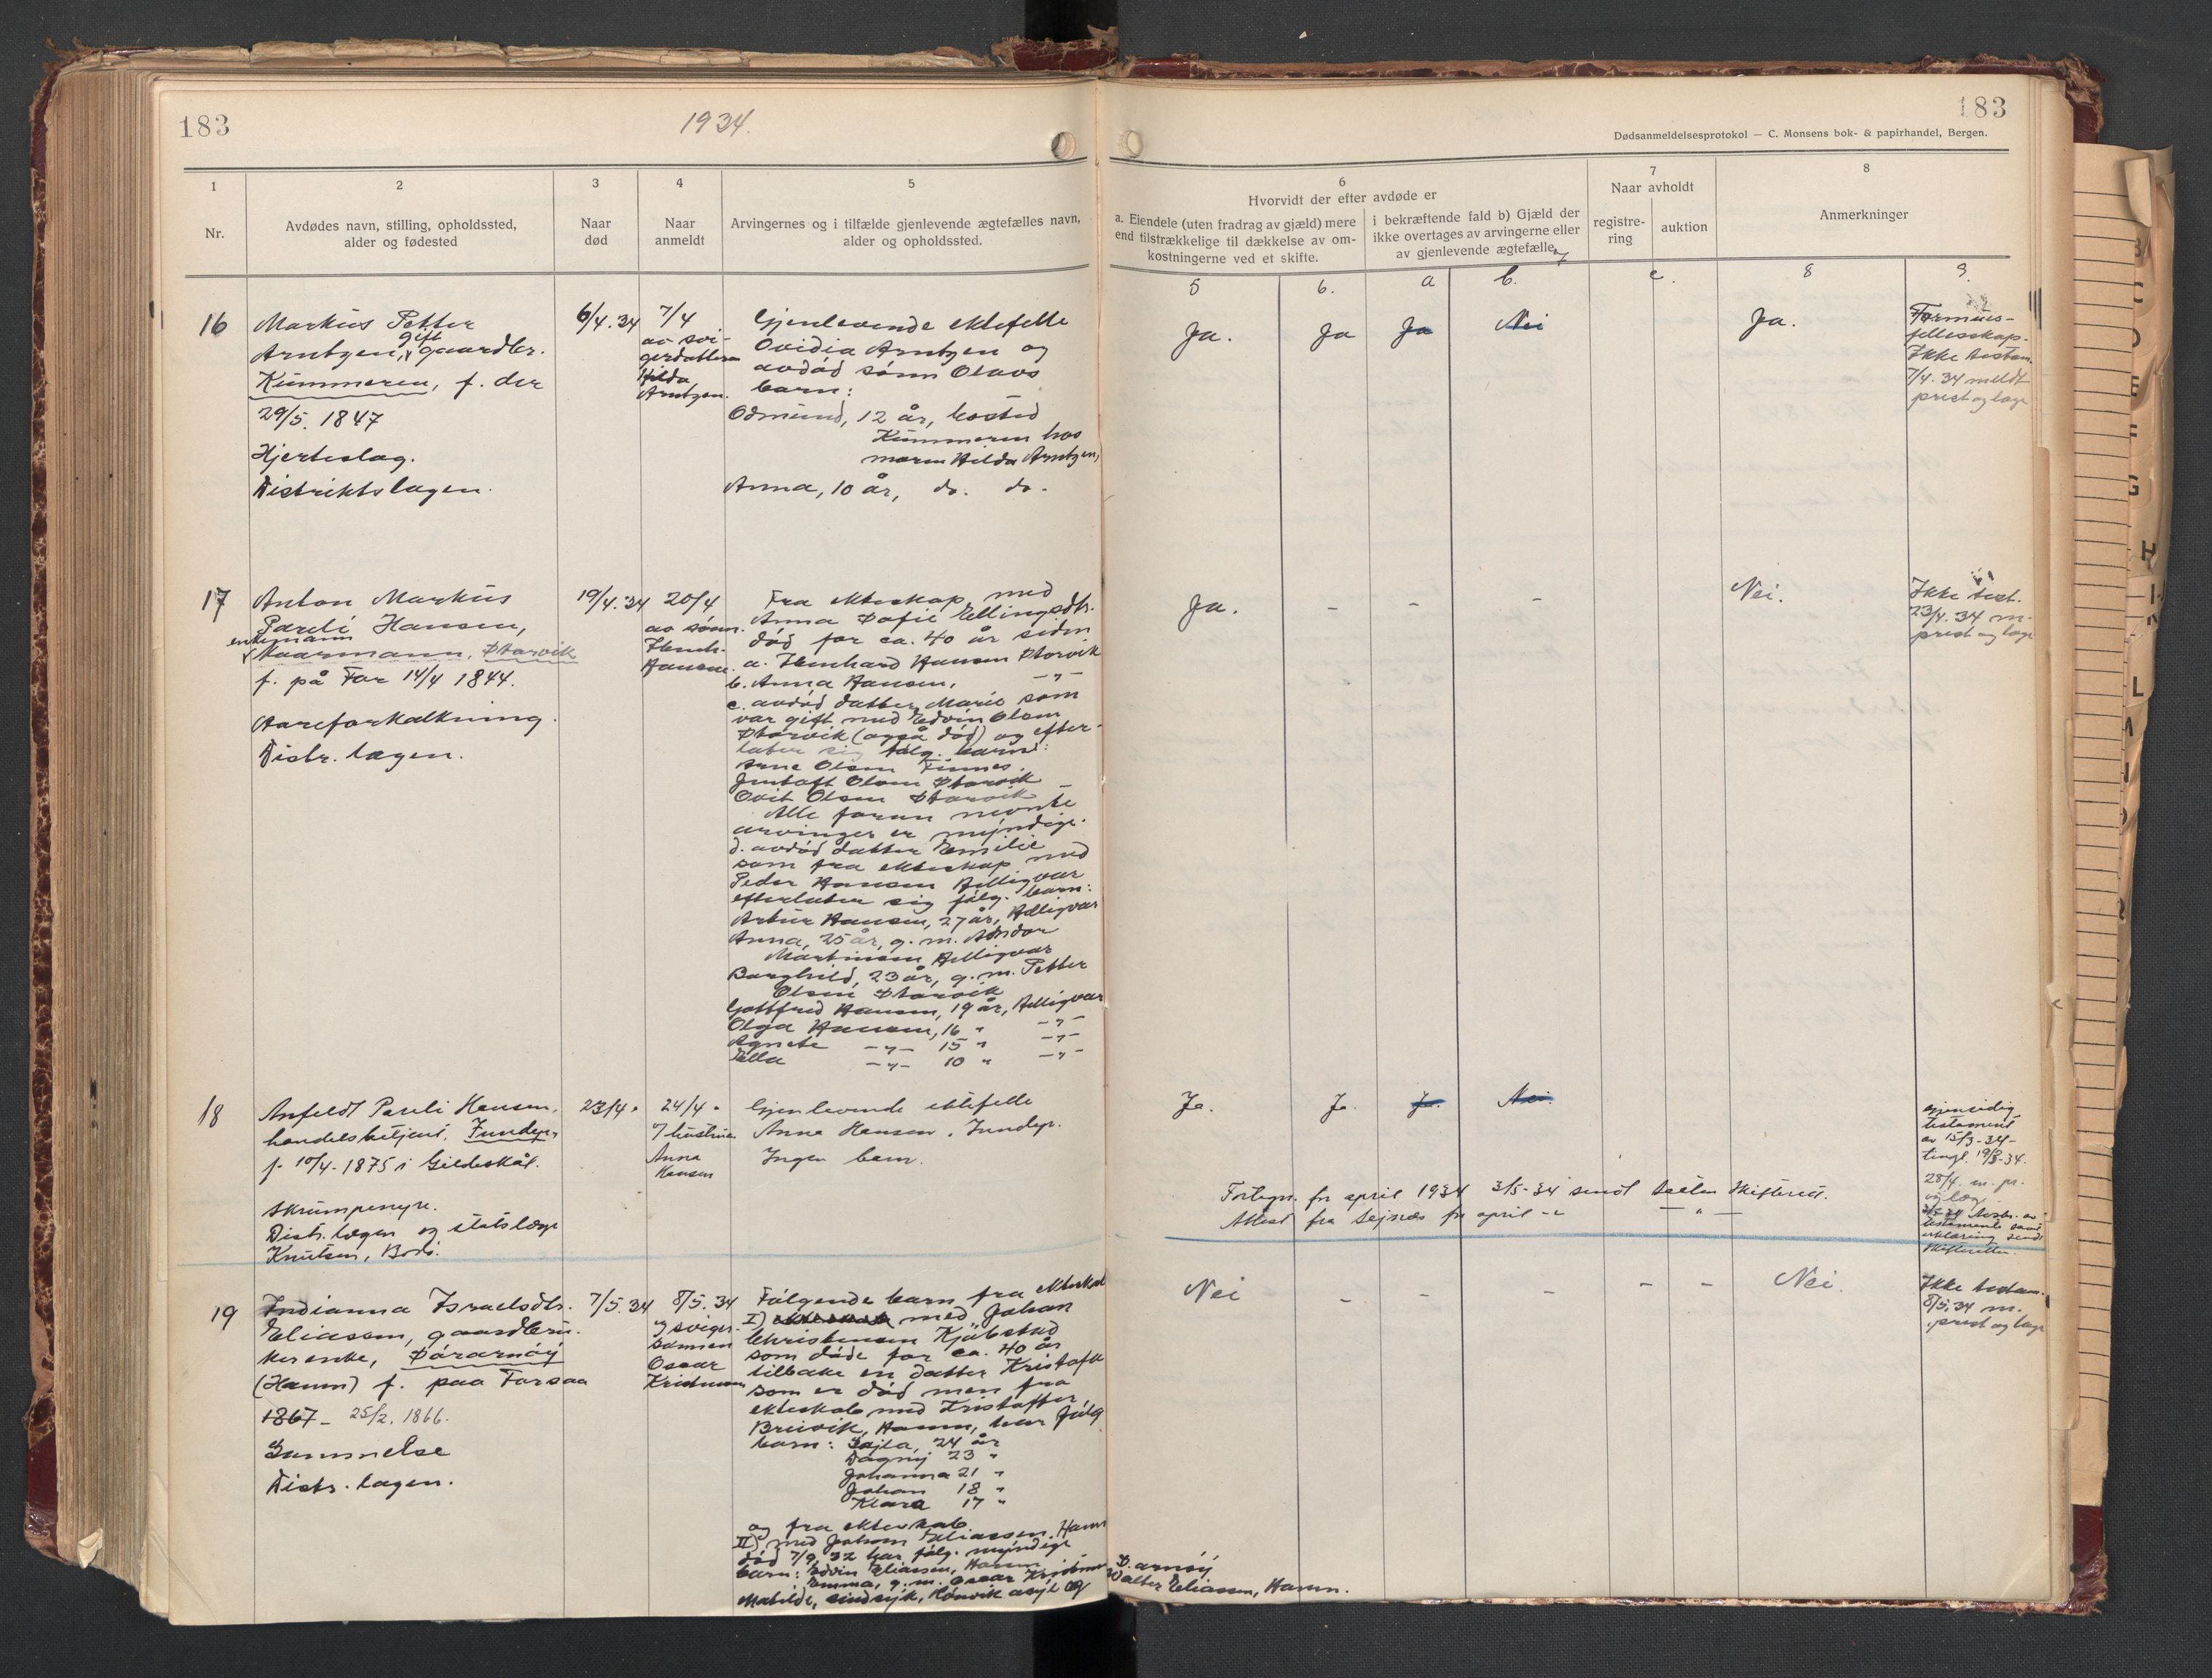 183
1934.
183
Dødsanmeldelsesprotokol — C. Monsens bok- & papirhandel, Bergen.
1
Nr.
2
Avdødes navn, stilling, opholdssted,
alder og fødested
3
Naar
død
4
Naar
anmeldt
5
Arvingernes og i tilfælde gjenlevende ægtefælles navn,
alder og opholdssted.
6
Hvorvidt der efter avdøde er
a. Eiendele (uten fradrag av gjæld) mere
end tilstrækkelige til dækkelse av om-
kostningerne ved et skifte.
i bekræftende fald b) Gjæld der
ikke overtages av arvingerne eller
av gjenlevende ægtefælle.
7
Naar avholdt
registre-
ring
auktion
8
Anmerkninger
5
6.
a
b.
c.
8
9.
16
Markus Petter
gift
Arntzen, gaardbr.
Kummeren, f. der
29/5. 1847
Hjerteslag.
Distriktslægen.
6/4.34
7/4
av svi-
gerdatteren
Hilda
Arntzen.
Gjenlevende ektefelle
Ovidia Arntzen og
avdød sønn Olavs
barn:
Odmund, 12 år, bosted
Kummeren hos
moren Hilda Arntzen,
Anna, 10 år, do. do.
Ja.
Ja
Ja
Nei
Ja.
Formues-
fellesskap.
Ikke testam.
7/4. 34 meldt
prest og læge
17
Anton Markus
Pareli Hansen,
enkemann
kaarmann, Storvik
f. på For 14/4 1844.
Aareforkalkning.
Distr. lægen.
19/4.34
20/4
av sønn.
Hansen.
Fra ekteskap med
Anna Sofie Ellingsdtr.
død for ca. 40 år siden
a. Hansen Storvik
b. Anna Hansen, -"-
c. avdød datter Marie som
var gift med Edvin Olsen
Storvik (også død) og efter-
later sig følg. barn:
Arne Olsen Finnes.
Olsen Storvik
Ovit Olsen Storvik
Alle foran nevnte
arvinger er myndige.
d. avdød datter Emilie
som fra ekteskap med
Peder HansenÆlligvær
efterlater sig følg. barn:
Artur Hansen, 27 år, Ælligvær
Anna, 25 år, g. m. Andor
Martinsen Ælligvær
Borghild, 23 år, g. m. Petter
Olsen Storvik
Gottfred Hansen, 19 år, Ælligvær
Olga Hansen, 16 " -"-
Agnete -"- 15 " -"-
Ella -"- 10 " -"-
Ja.
-
-
-
Nei.
Ikke test.
23/4. 34 m.
prest og læge
18
Anfeldt Pareli Hansen,
handelsbetjent, Inndyr,
f. 10/4-1875 i Gildeskål.
Skrumpenyre.
Distr. lægen og statslæge
Knutsen, Bodø.
23/4.
24/4.
v/ hustruen
Anna
Hansen
Gjenlevende ektefelle
Anna Hansen, Inndyr.
Ingen barn.
Ja.
Ja.
Ja.
Nei.
gjensidig
testament
av 15/3-34-
tingl. 19/3-34.
28/4. m. pr.
og læge
testamente samt
erklæring sendt
skifteretten.
Fortegn. for april 1934 3/5-34 sendt Salten Skifterett.
Attest fra for april -"- -"-
19
Indianna Israelsdtr.
Eliassen, gaardbru-
kerenke, Sørarnøy
(Hamn) f. paa Forsaa
1867- 25/2. 1866.
Lammelse
Distr. lægen.
7/5.34
8/5.34
v/ sviger-
sønnen
Oscar
Kristensen
Følgende barn fra ekteskab
I) med Johan
Christensen Kjøbstad
som døde for ca. 40 år
tilbake en datter Kristofa
som er død men fra
ekteskab med Kristoffer
Breivik, Hamn, har følg.
barn: Lajla, 24 år
Dagny 23 "
Johanna 21 "
Johan 18 "
Klara 17 "
og fra ekteskab
II) med Johan Eliassen, Hamn
død 7/9.32 har følg. myndige
barn: Edvin Eliassen, Hamn
Emma, g. m. Oscar Kristensen S. arnøy
Matilde, sindsyk, Rønvik asyl og Valter Eliassen, Hamn.
Nei
-
-
-
-
-
Nei.
Ikke testam.
8/5.34 m.
prest og læge